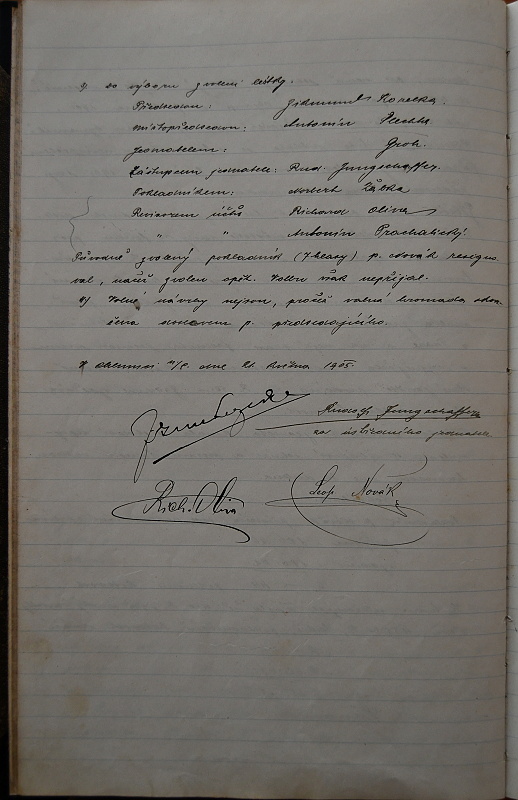 do výboru zvoleni lístky.
Předsedou: Zikmund
místopředsedou: Antonín Plechta
jednatelem: Groh.
Zástupcem jednatele: Rud. Jungschaffer.
Pokladníkem: Norbert Žáka
Revisorem účtů Richard Oliva
" " Antonín Prachatický.
Původně zvolený pokladník (7 hlasy) p. Novák resigno-
val, načež zvolen opět. Volbu však nepřijal.
Volné návrhy nejsou, pročež valná hromada skon-
čena slovem p. předsedajícího.
dne 21. května 1905.
Rudolf Jungschaffer
za jednatele
Rich. Oliva
Leop. Novák